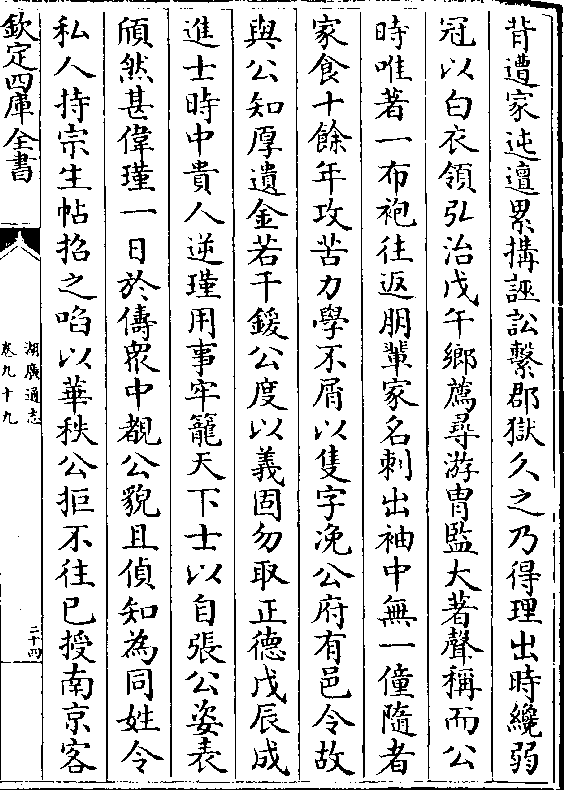 背遭家迍邅累搆誣訟繫郡獄久之乃得理出時纔弱
冠以白衣領弘治戊午鄉薦尋游胄監大著聲稱而公
時唯著一布袍往返朋輩家名刺出袖中無一僮隨者
家食十餘年攻苦力學不屑以隻字浼公府有邑令故
與公知厚遺金若干鍰公度以義固勿取正德戊辰成
進士時中貴人逆瑾用事牢籠天下士以自張公姿表
頎然甚偉瑾一日於儔衆中覩公貌且偵知為同姓令
私人持宗生帖招之啗以華秩公拒不往已授南京客
欽定四庫全書
湖廣通志
卷九十九
二十四